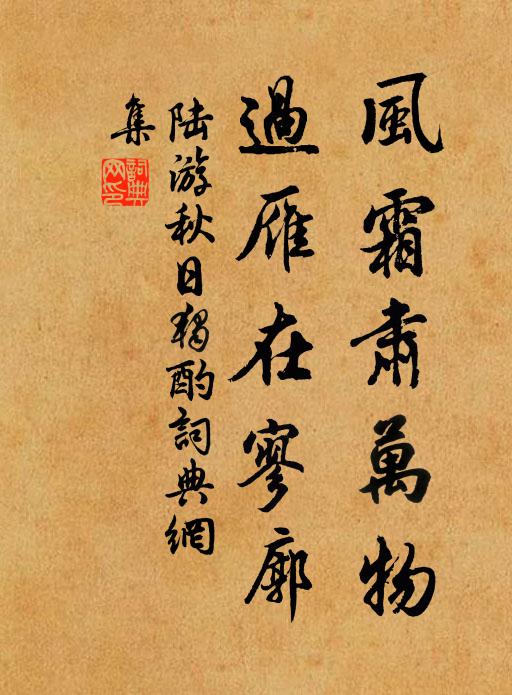 風霜肅萬物
過雁在寥廓
陸游秋日獨酌詞典網
集
詞典
网印